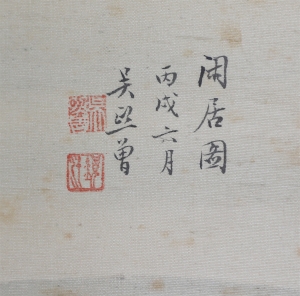 闲居图
丙戌六月
吴熙曾